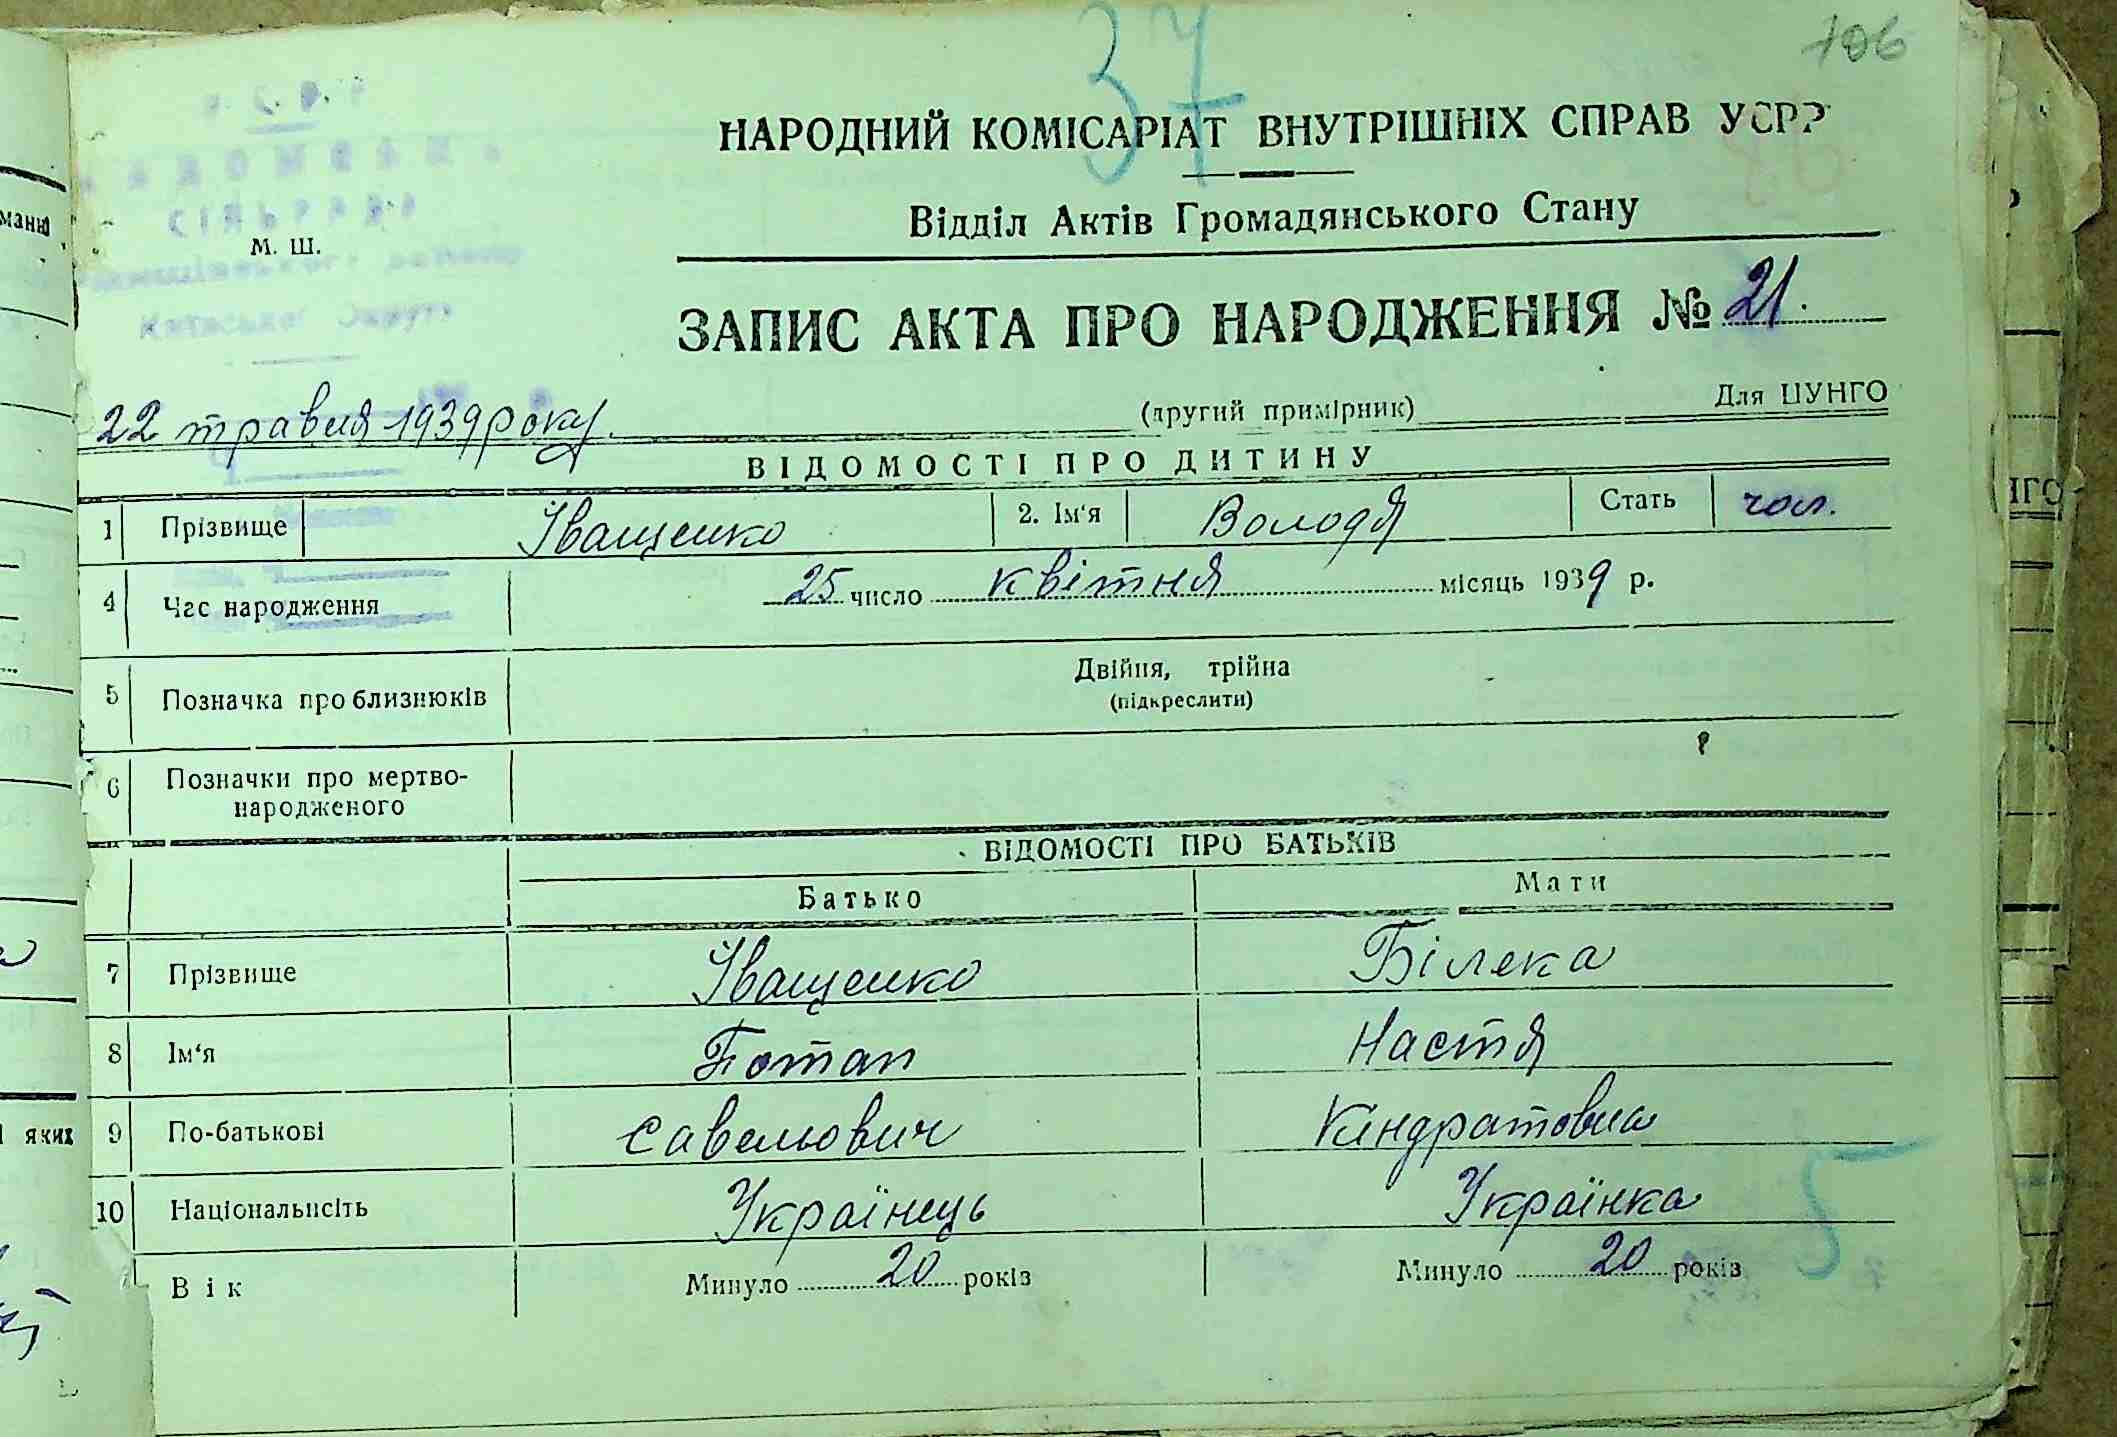 37
106
НАРОДНИЙ КОМІСАРІАТ ВНУТРІШНІХ СПРАВ УСРР
Відділ Актів Громадянського Стану
СІЛЬРАДА
М. Ш.
Київської Округи
ЗАПИС АКТА ПРО НАРОДЖЕННЯ № 21.
22 травня 1939 року.
(другий примірник)
Для ЦУНГО
ВІДОМОСТІ ПРО ДИТИНУ
1 Прізвище Іващенко 2. Ім'я Володя Стать чол.
4 Час народження 25 число квітня місяць 1939 р.
5 Позначка про близнюків Двійня, трійна
(підкреслити)
6 Позначки про мертво-
народженого
ВІДОМОСТІ ПРО БАТЬКІВ
Батько Мати
7 Прізвище Іващенко Білека
8 Ім'я Потап Настя
9 По-батькові Савельович Кіндратовна
10 Національність Українець Українка
5
Вік Минуло 20 років Минуло 20 років
яких